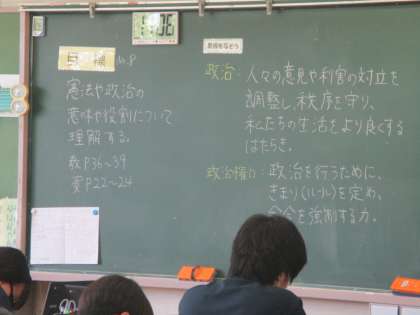 目標 No.8
憲法や政治の
意味や役割について
理解する。
教P36~39
資P22~24
政治：人々の意見や利害の対立を
調整し、秩序を守り、
私たちの生活をより良くする
はたらき。
政治権力：政治を行うために、
きまり(ルール)を定め、
命令を強制する力。